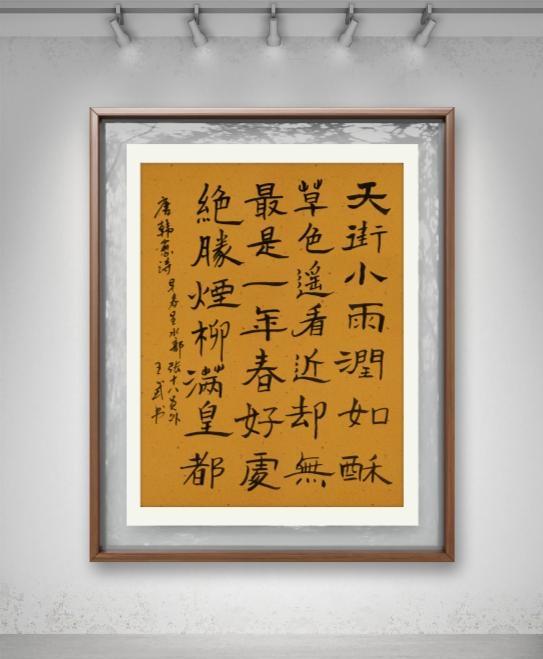 天街小雨潤如酥
草色遥看近却無
最是一年春好處
絶勝煙柳滿皇都
唐韩愈诗早春呈水部张十八员外
王武书